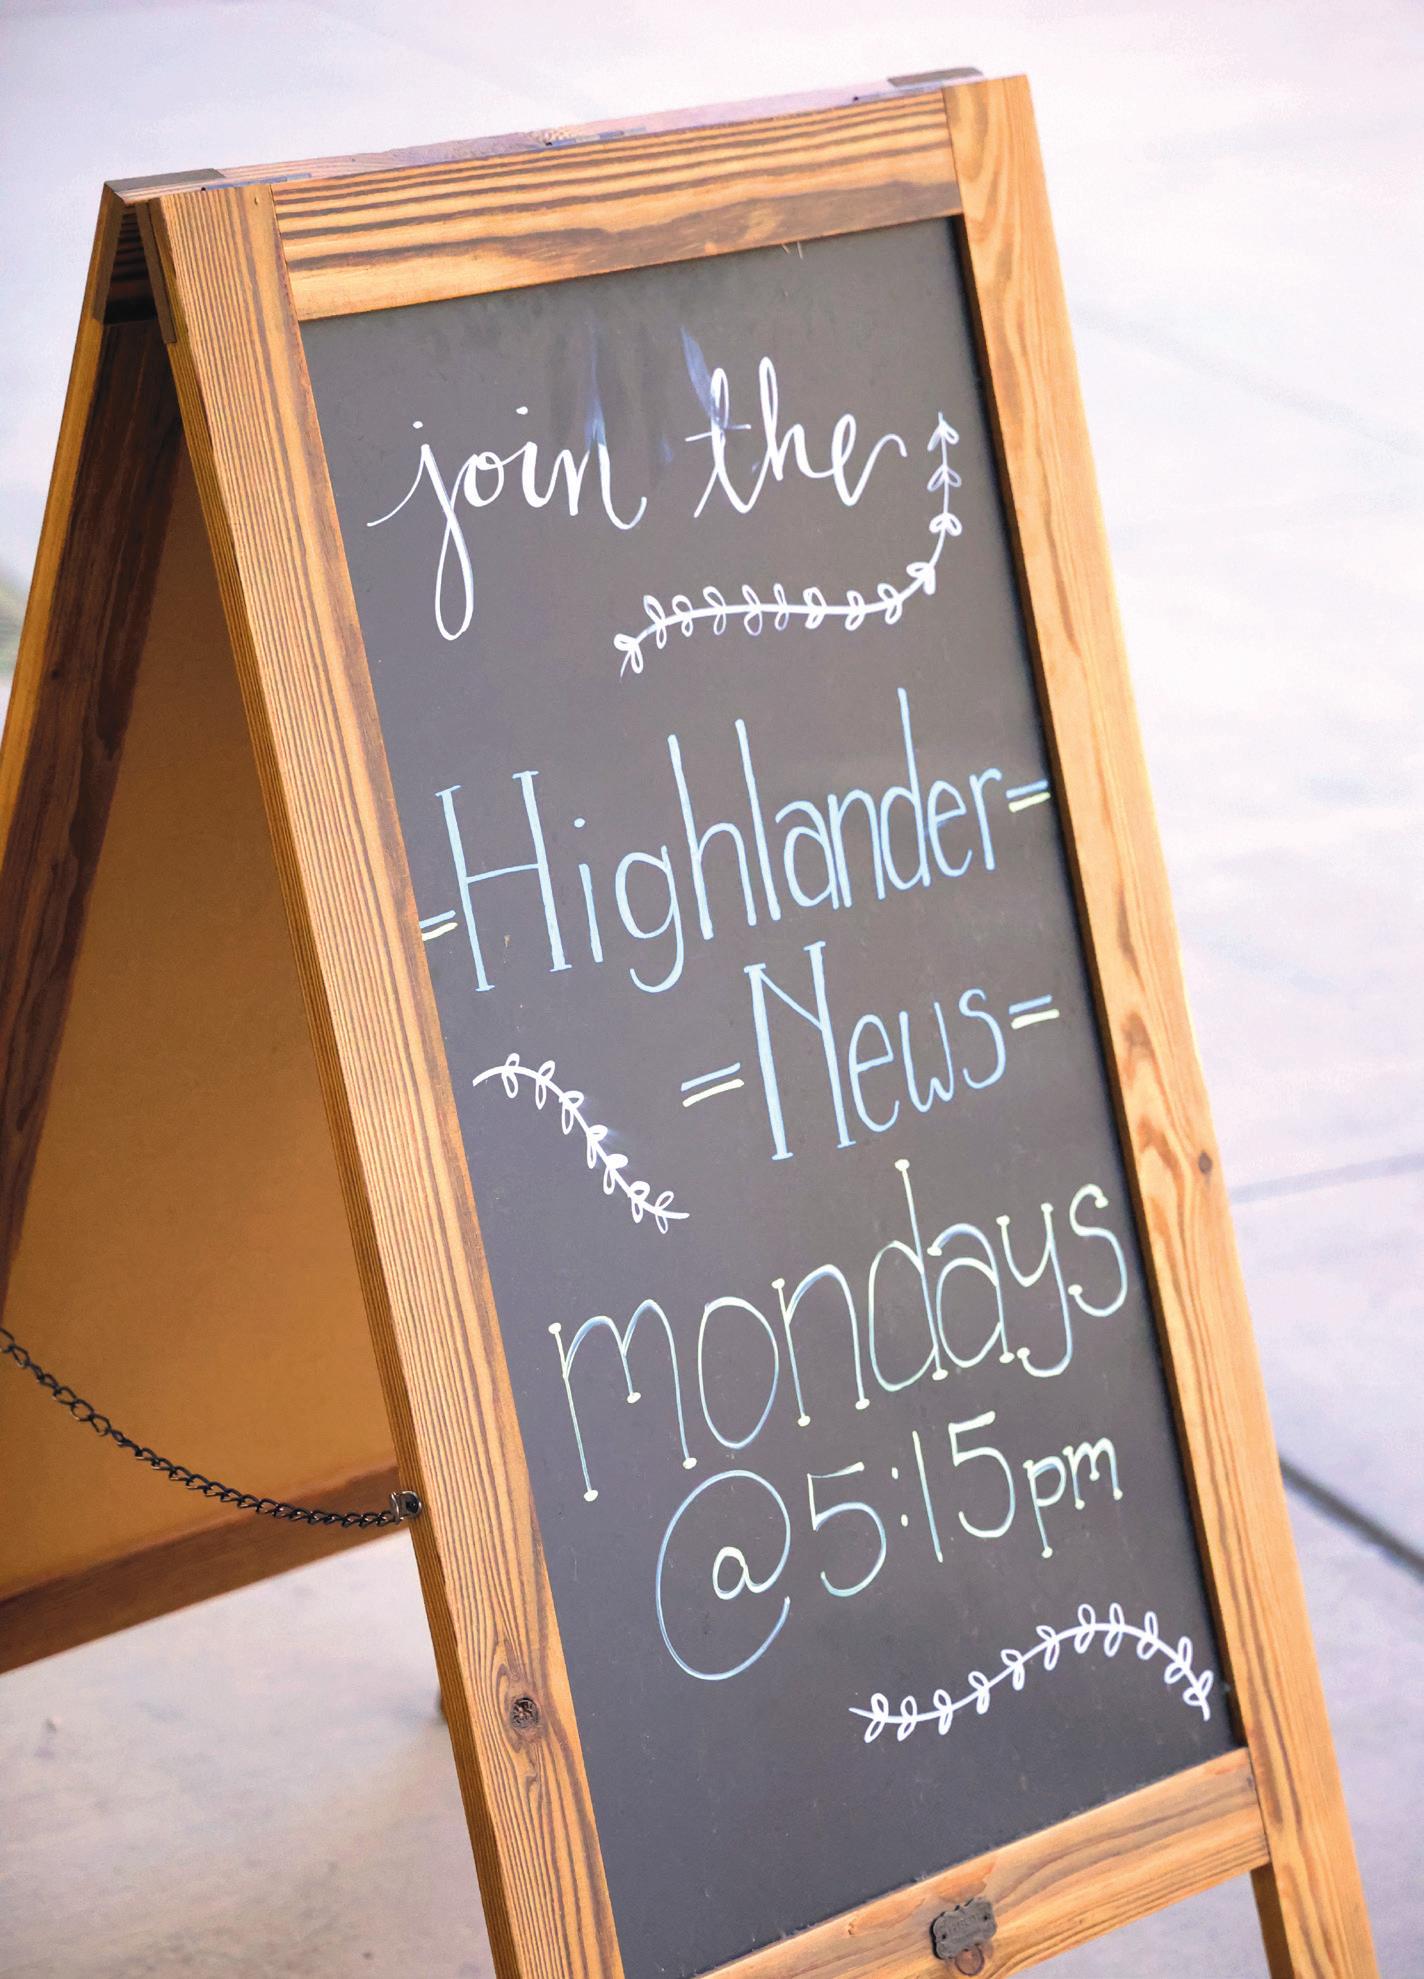 join the
=Highlander=
=News=
mondays
@5:15pm